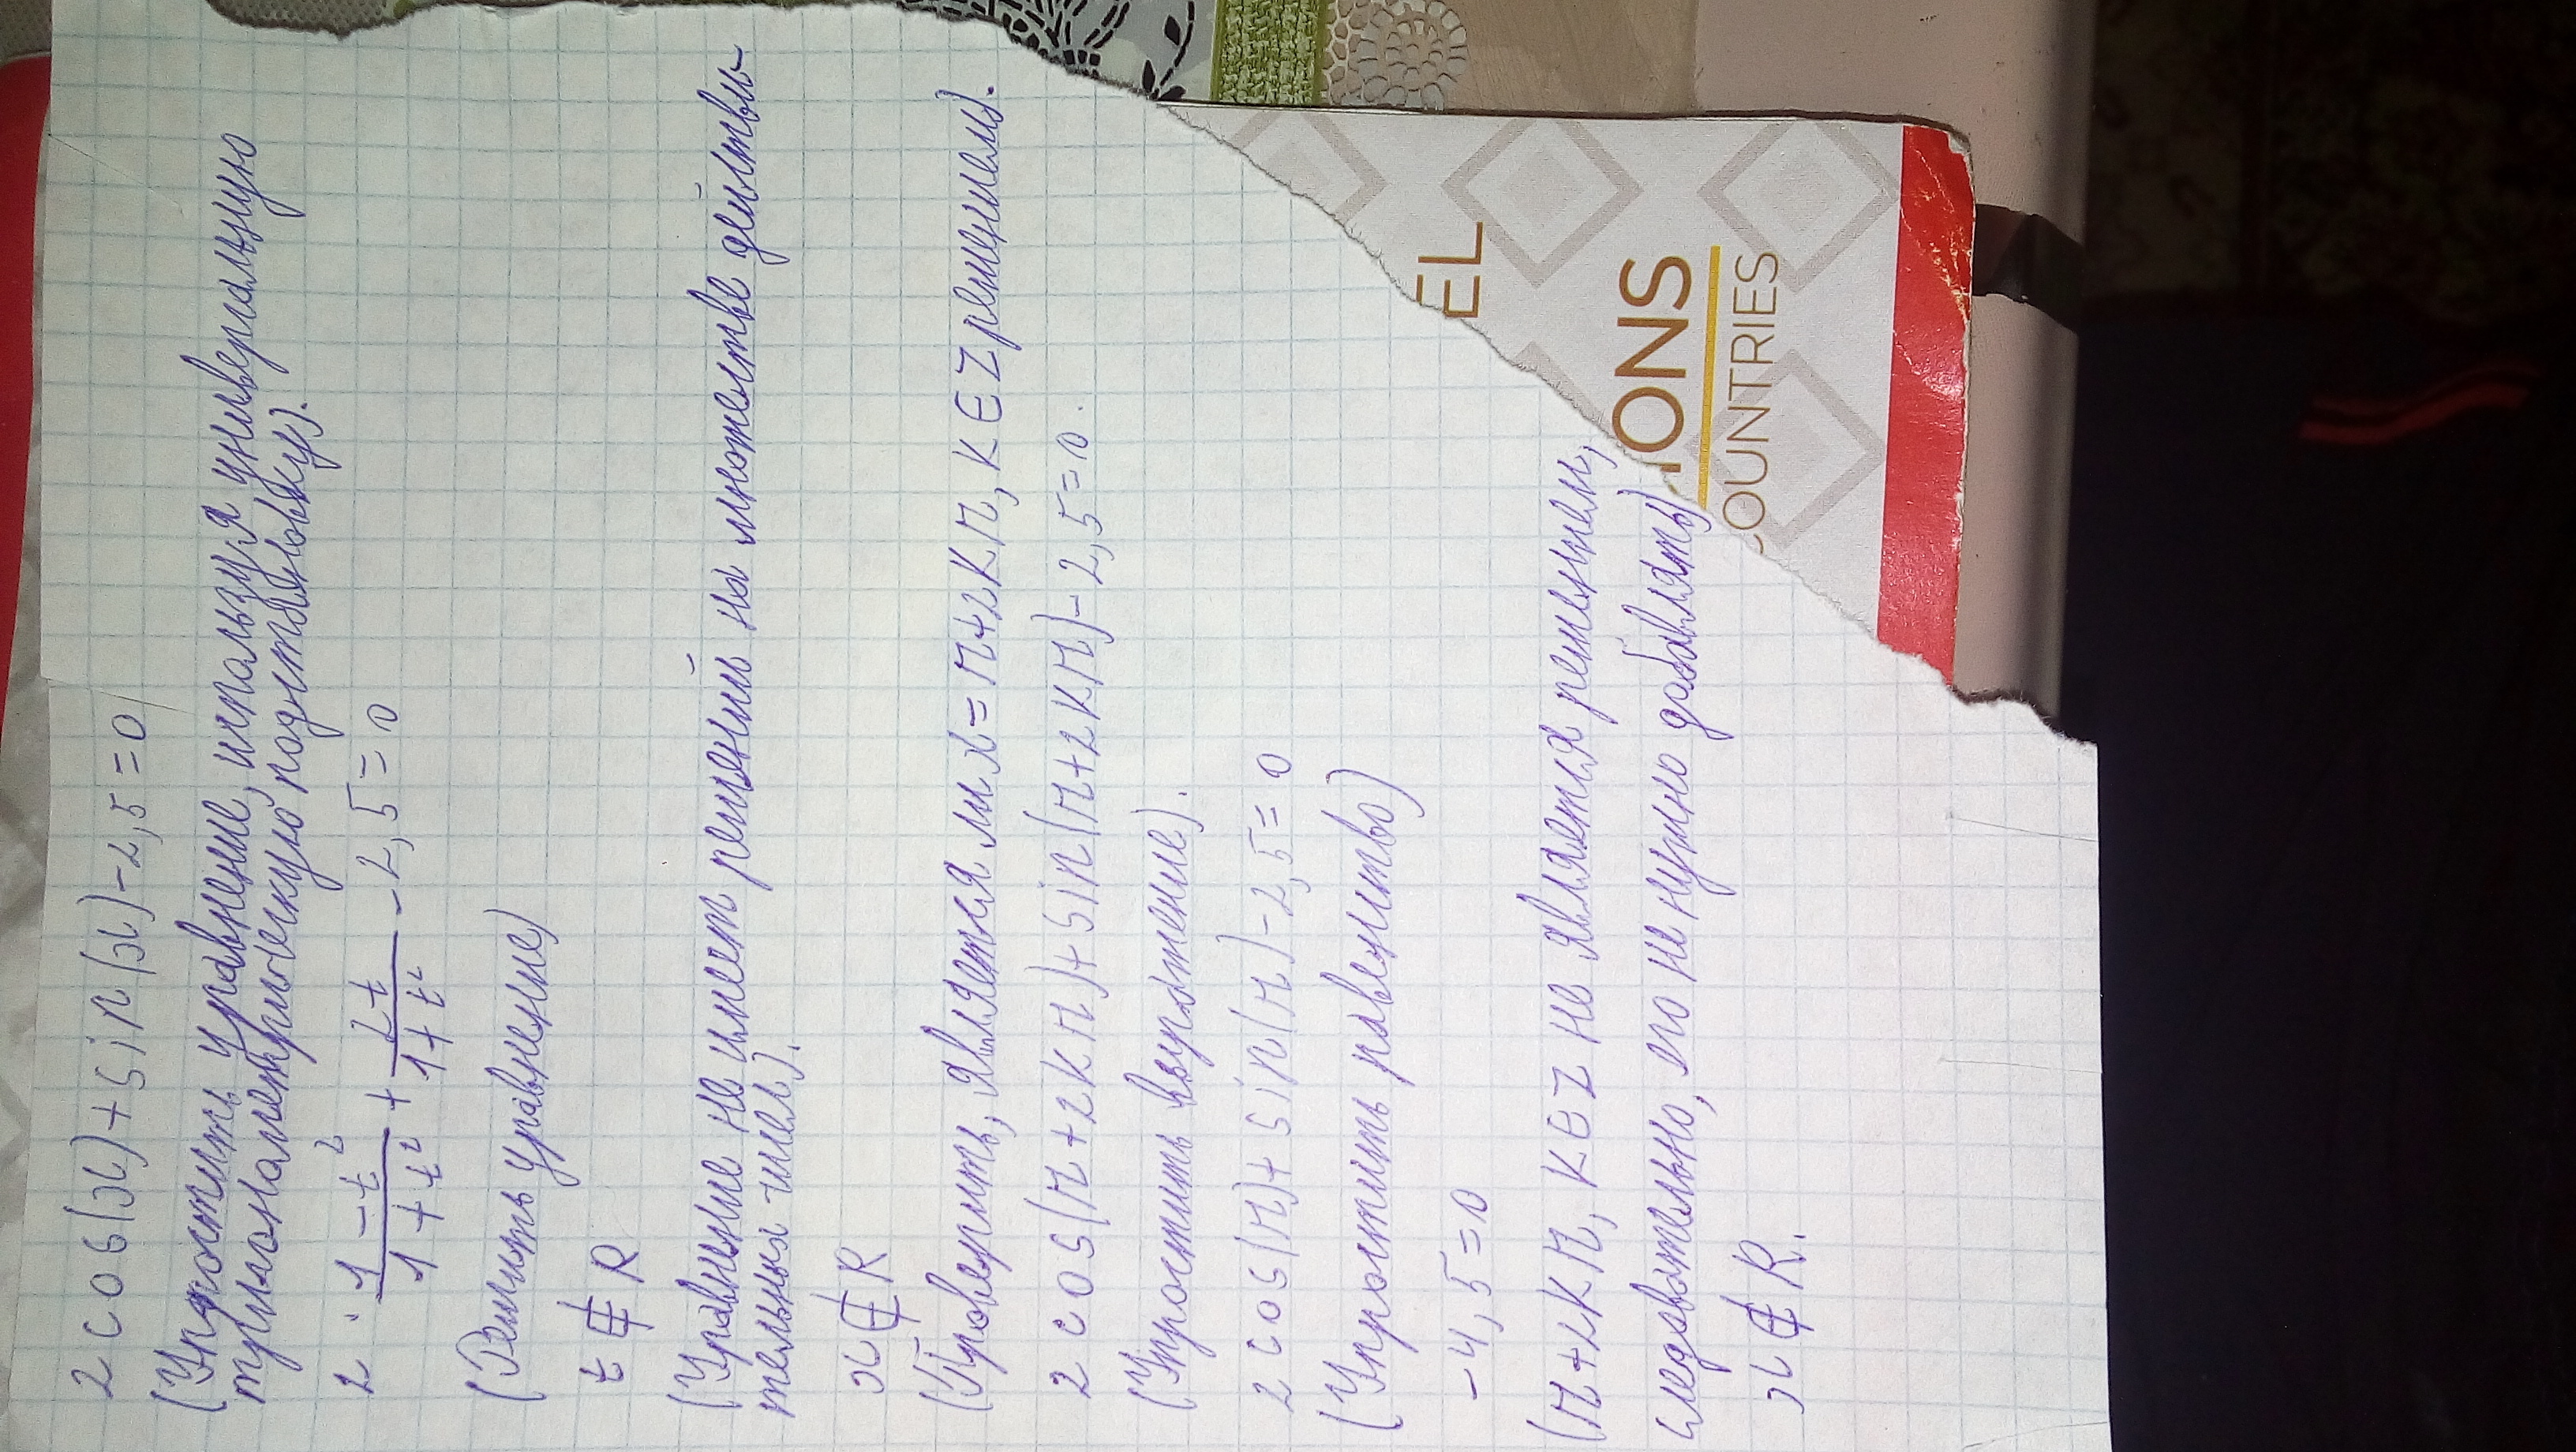 2 cos(x) + sin(x) - 2,5 = 0
(Упростить уравнение, используя универсальную
тригонометрическую подстановку).
2 · (1 - t²)/(1 + t²) + 2t/(1 + t²) - 2,5 = 0
(Решить уравнение)
t ∉ R
(Уравнение не имеет решений на множестве действи-
тельных чисел).
x ∉ R
(Проверить, является ли x = π + 2kπ, k ∈ Z решением).
2 cos(π + 2kπ) + sin(π + 2kπ) - 2,5 = 0.
(Упростить выражение).
2 cos(π) + sin(π) - 2,5 = 0
(Упростить равенство)
-4,5 = 0
(π + 2kπ, k ∈ Z не является решением,
следовательно, его не нужно добавлять)
x ∉ R.
EL
IONS
COUNTRIES